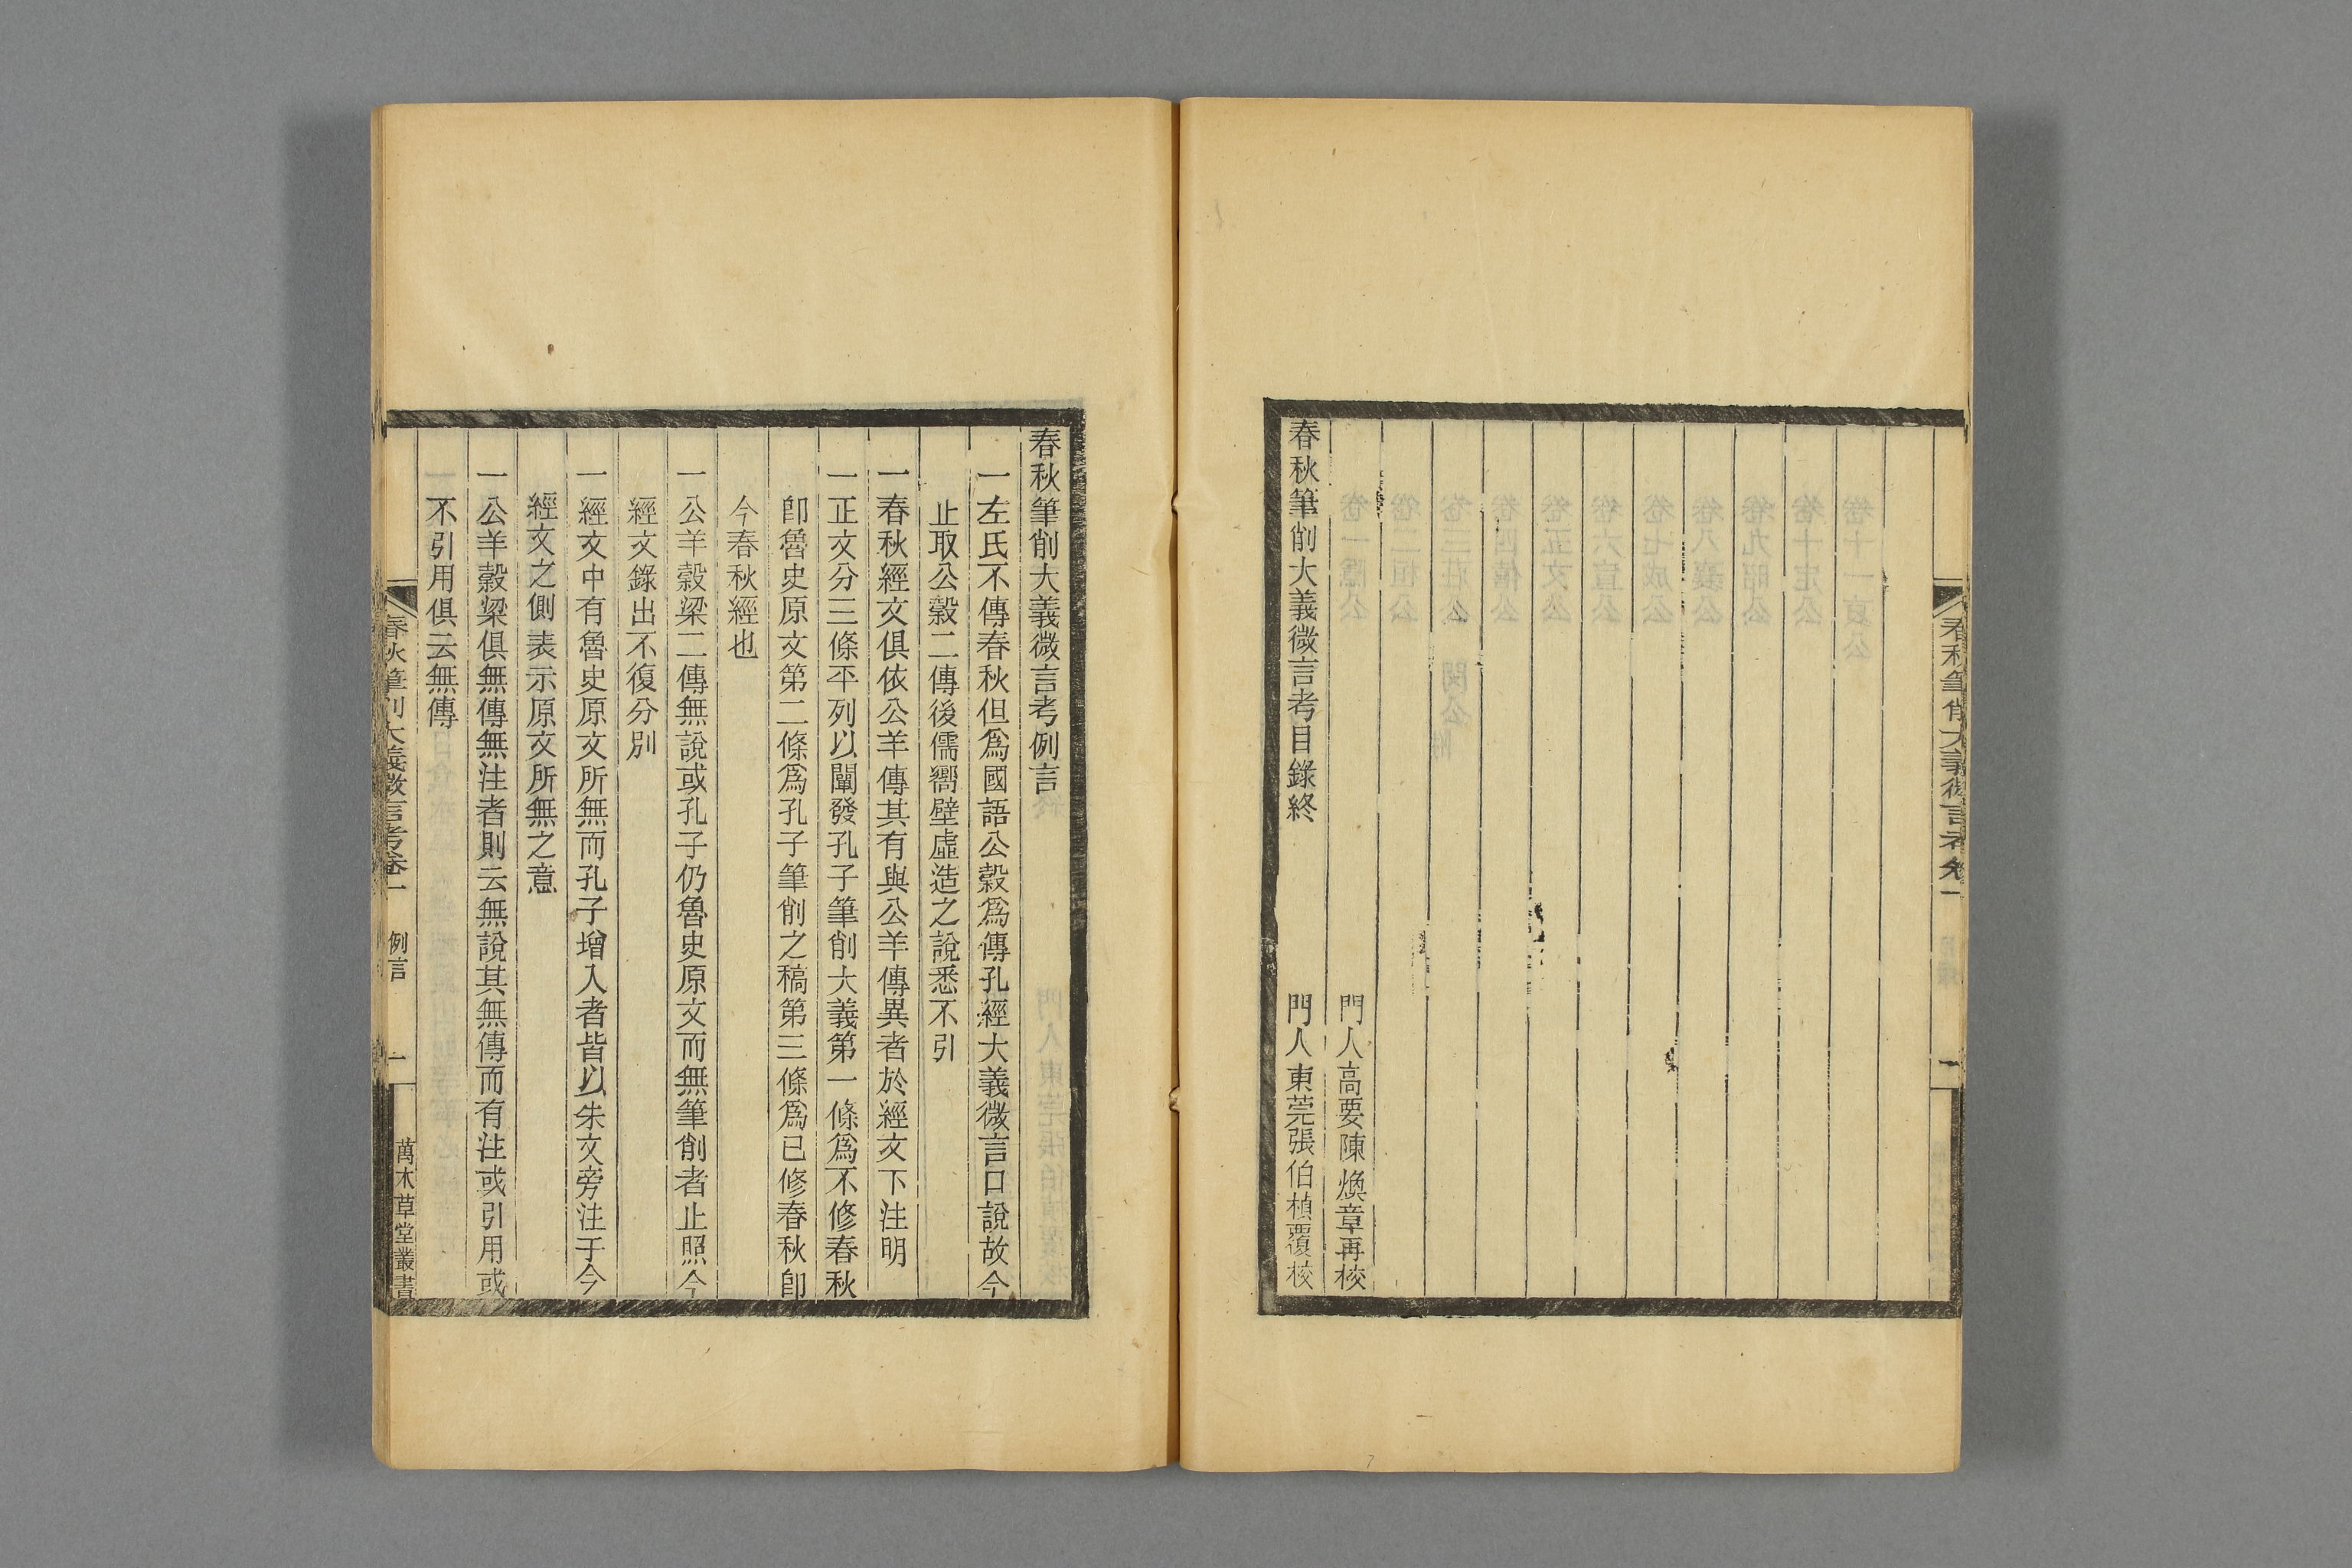 春秋筆削大義微言考卷一
一
門人高要陳煥章再校
春秋筆削大義微言考目錄終　門人東莞張伯楨覆校
春秋筆削大義微言考例言
一左氏不傳春秋但爲國語公穀爲傳孔經大義微言口說故今
止取公穀二傳後儒嚮壁虛造之說悉不引
一春秋經文俱依公羊傳其有與公羊傳異者於經文下注明
一正文分三條平列以闡發孔子筆削大義第一條爲不修春秋
卽魯史原文第二條爲孔子筆削之稿第三條爲已修春秋卽
今春秋經也
一公羊穀梁二傳無說或孔子仍魯史原文而無筆削者止照今
經文錄出不復分別
一經文中有魯史原文所無而孔子增入者皆以朱文旁注于今
經文之側表示原文所無之意
一公羊穀梁俱無傳無注者則云無說其無傳而有注或引用或
不引用俱云無傳
春秋筆削大義微言考卷一　例言　一　萬木草堂叢書